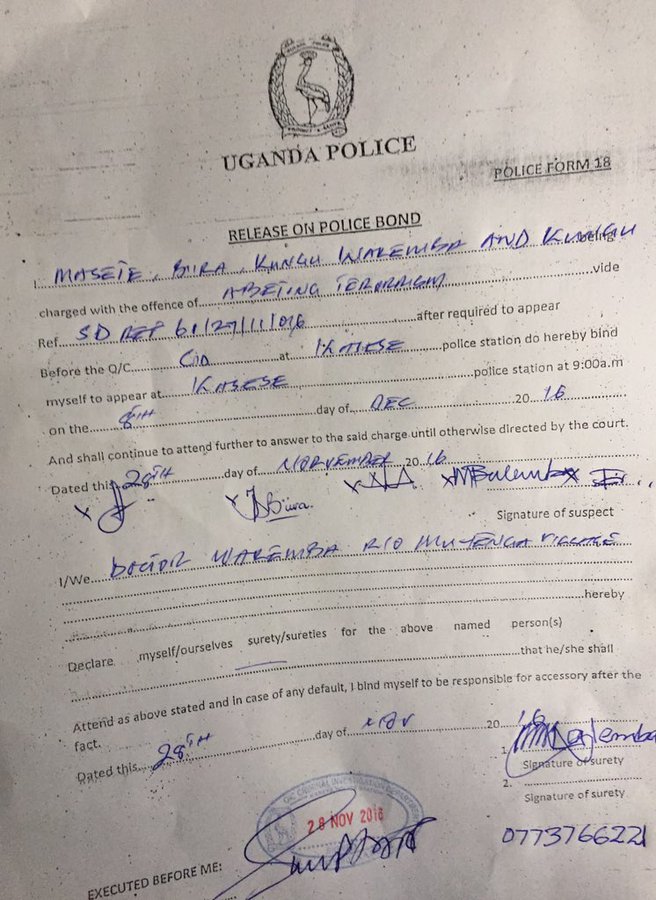 UGANDA POLICE
POLICE FORM 18
RELEASE ON POLICE BOND
I MASETE, BIIRA, KUNGU WAREMBA AND KUNGU being
charged with the offence of ABETING TERORRISM vide
Ref SD REF 61/27/11/016 after required to appear
Before the O/C CID at KASESE police station do hereby bind
myself to appear at KASESE police station at 9:00a.m
on the 8TH day of DEC 20 16
And shall continue to attend further to answer to the said charge until otherwise directed by the court.
Dated this 28TH day of NORVEMBER 20 16
x x Biira. x x
Signature of suspect
I/We DOCTOR WAREMBA R/O VILLAGE
hereby
Declare myself/ourselves surety/sureties for the above named person(s)
that he/she shall
Attend as above stated and in case of any default, I bind myself to be responsible for accessory after the
fact.
Dated this 28TH day of NOV 20 16
1.
Signature of surety
2.
Signature of surety
28 NOV 2016
0773766221
EXECUTED BEFORE ME: